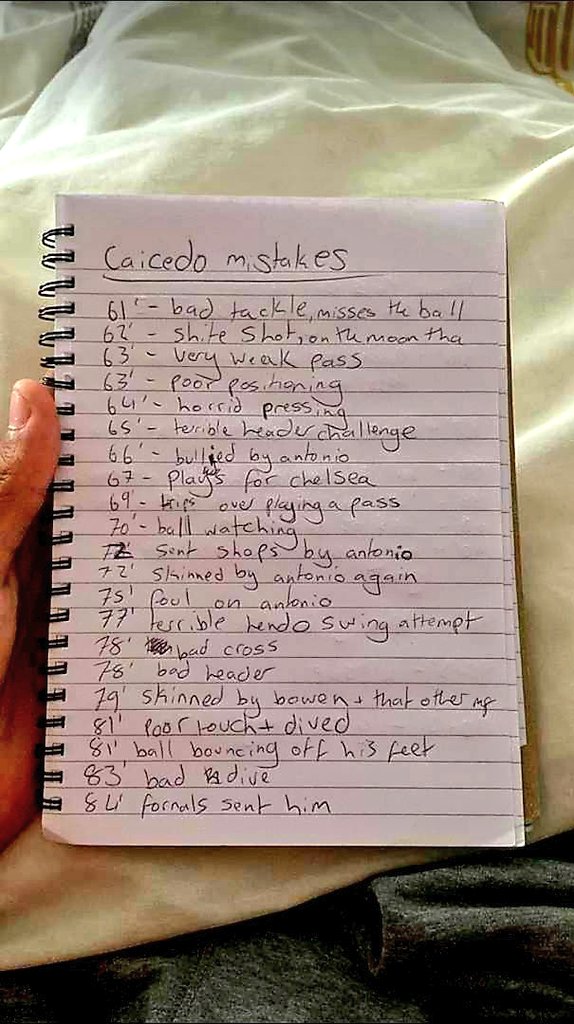 Caicedo mistakes
61' - bad tackle, misses the ball
62' - shite shot, on the moon tha
63' - very weak pass
63' - poor positioning
64' - horrid pressing
65' - terrible header challenge
66' - bullied by antonio
67 - plays for chelsea
69' - trips over playing a pass
70' - ball watching
72 sent shops by antonio
72' skinned by antonio again
75' foul on antonio
77' terrible hendo swing attempt
78' bad cross
78' bad header
79' skinned by bowen + that other mf
81' poor touch + dived
81' ball bouncing off his feet
83' bad dive
84' fornals sent him